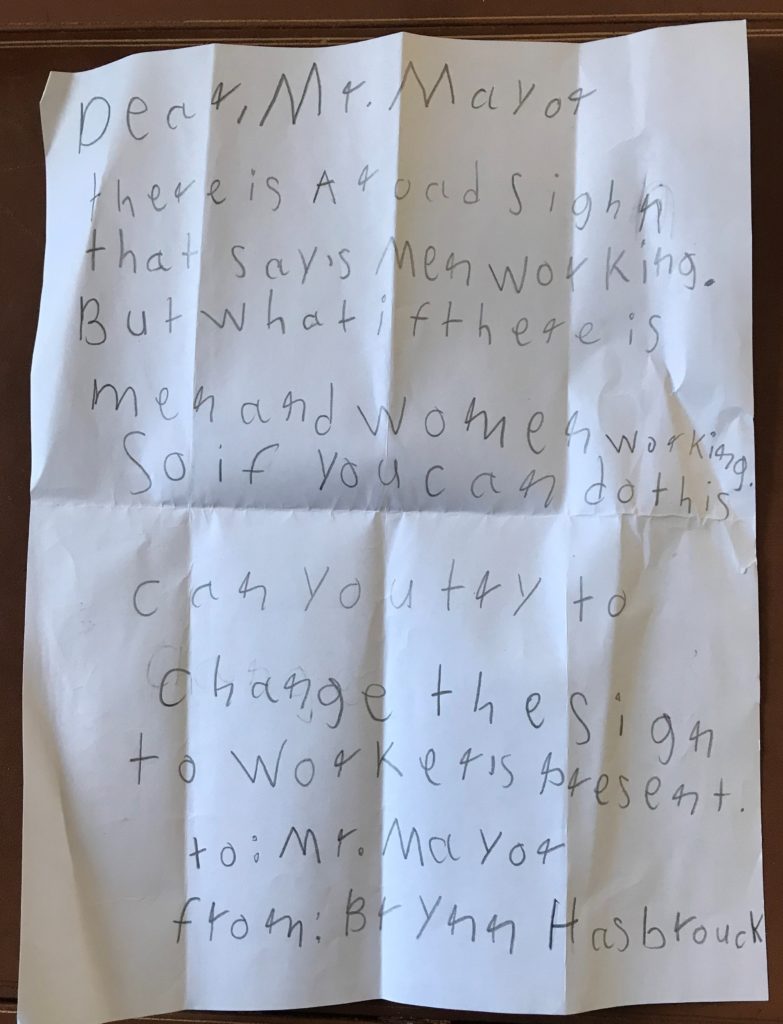 Dear, Mr. Mayor
there is A road sighn
that say's Men working.
But what if there is
men and women working.
So if you can do this
can you try to
change the sign
to worker's present.
to: Mr. Mayor
from: Brynn Hasbrouck